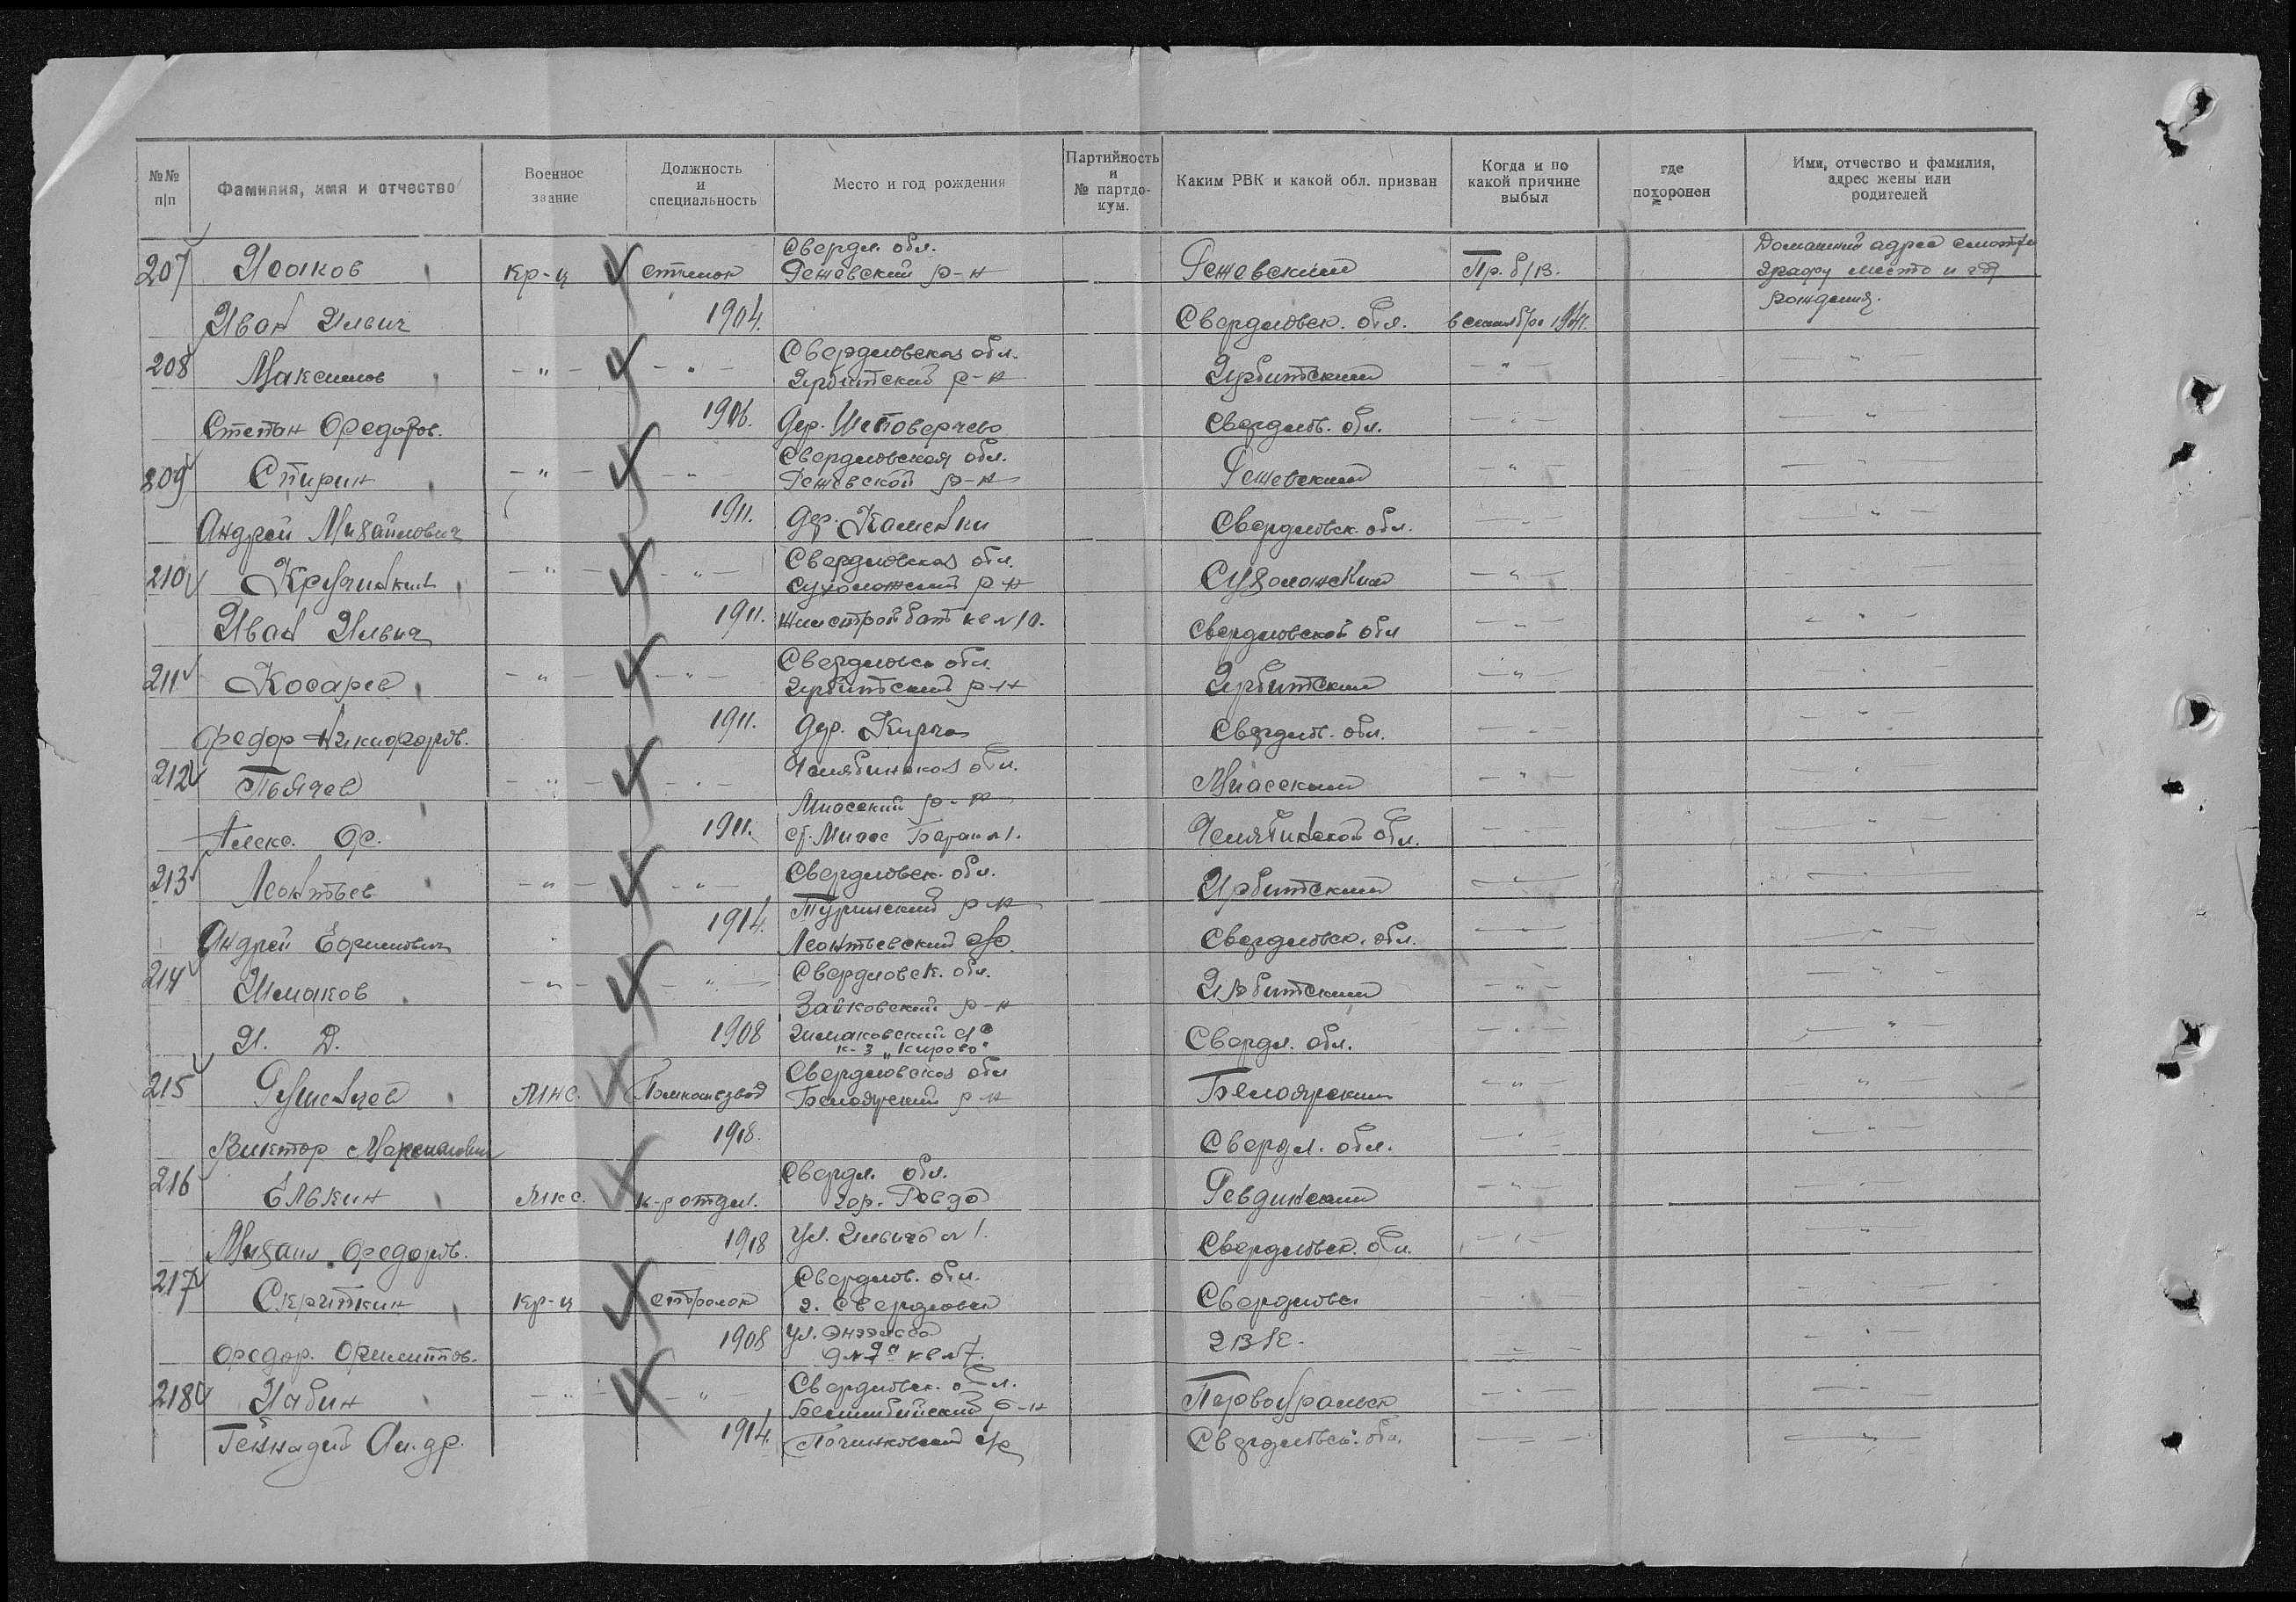 №№ п|п
Фамилия, имя и отчество
Военное звание
Должность и специальность
Место и год рождения
Партийность и № партдокум.
Каким РВК и какой обл. призван
Когда и по какой причине выбыл
где похоронен
Имя, отчество и фамилия, адрес жены или родителей
Свердл. обл.
Домашний адрес смотри
207 Исаков кр-ц стрелок Режевский р-н Режевский Пр. б/в. графу место и год
рождения.
Иван Ильич 1904. Свердловск. обл. в сентябре 1941.
Свердловская обл.
208 Максимов - " - - " - Ирбитский р-н Ирбитский - " - - " -
Степан Федоров. 1906. Дер. Свердлов. обл. - " - - " -
Свердловская обл.
209 Спирин - " - - " - Режевской р-н Режевский - " - - " -
Андрей Михайлович 1911. Дер. Каменки Свердловск. обл. - " - - " -
Свердловская обл.
210 - " - - " - Сухоложский р-н Сухоложский - " - - " -
Иван Ильич 1911. кв N10. Свердловской обл - " - - " -
Свердловск обл.
211 Косарев - " - - " - Ирбитский р-н Ирбитский - " - - " -
Федор Никифоров. 1911. Дер. Кирга Свердлов. обл. - " - - " -
Челябинская обл.
212 - " - - " - Миасский р-н Миасский - " - - " -
Алекс. Ф. 1911. ст. Миасс Барак N1. Челябинской обл. - " - - " -
Свердловск. обл.
213 Леонтьев - " - - " - Туринский р-н Ирбитский - " - - " -
Андрей Ефимович 1914. Леонтьевский с/с Свердловск. обл. - " - - " -
Свердловск. обл.
214 - " - - " - Зайковский р-н Ирбитский - " - - " -
И. Д. 1908 с/с Свердл. обл. - " - - " -
к-з "Кирово"
Свердловская обл
215 Помкомвзвод Белоярский р-н Белоярский - " - - " -
Виктор Максимович 1918. Свердл. обл. - " - - " -
Свердл. обл.
216 Елькин к-р отдел. гор. Ревда Ревдинский - " - - " -
Михаил Федоров. 1918 ул. Ильича N 1. Свердловск. обл. - " - - " -
Свердлов. обл.
217 кр-ц стрелок г. Свердловск Свердловск - " - - " -
Федор. 1908 ул. Энгельса ГВК - " - - " -
кв N7.
Свердловск. обл.
218 - " - - " - р-н Первоуральск - " - - " -
Геннадий Ан.др. 1914. Починковский с/с Свердловск. обл. - " - - " -